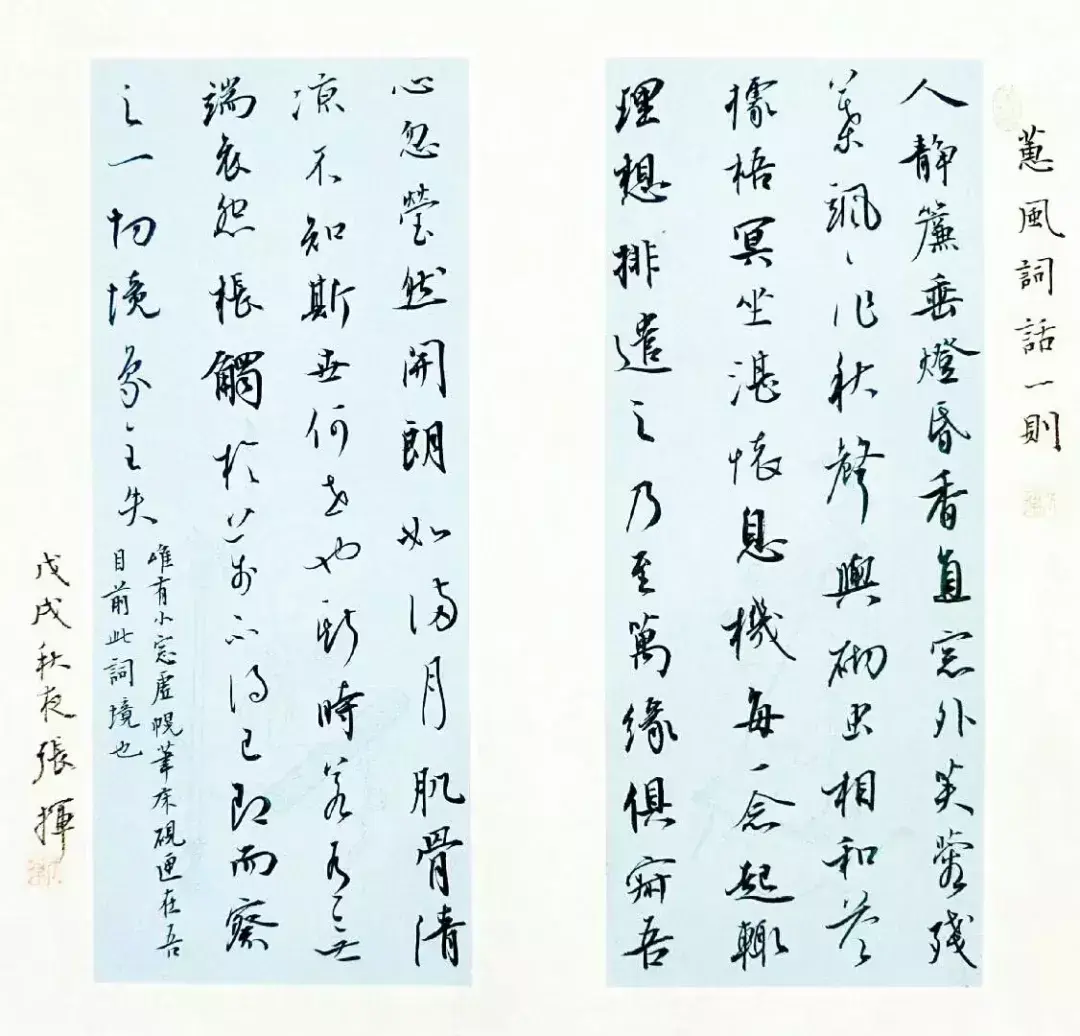 蕙風詞話一則
人靜簾垂燈昏香直窓外芙蓉殘
葉颯〻作秋聲與砌虫相和答
據梧冥坐湛懷息機每一念起輒
理想排遣之乃至萬緣俱寂吾
心忽瑩然開朗如滿月肌骨清
涼不知斯世何世也斯時若有無
端哀怨棖觸於万不得已即而察
之一切境象全失
唯有小窓虛幌筆床硯匣在吾
目前此詞境也
戊戌秋夜張揮